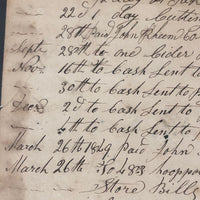 22d 1 day
28th Paid John
Sept 28th to one Cider
Nov. 16th to Cash Sent to
30th to Cash Sent to
Decr 2d to Cash Sent to
4th to Cash Sent to
March 26th 1849 Paid John
March 26th To 4823 hooppo
Store Bill